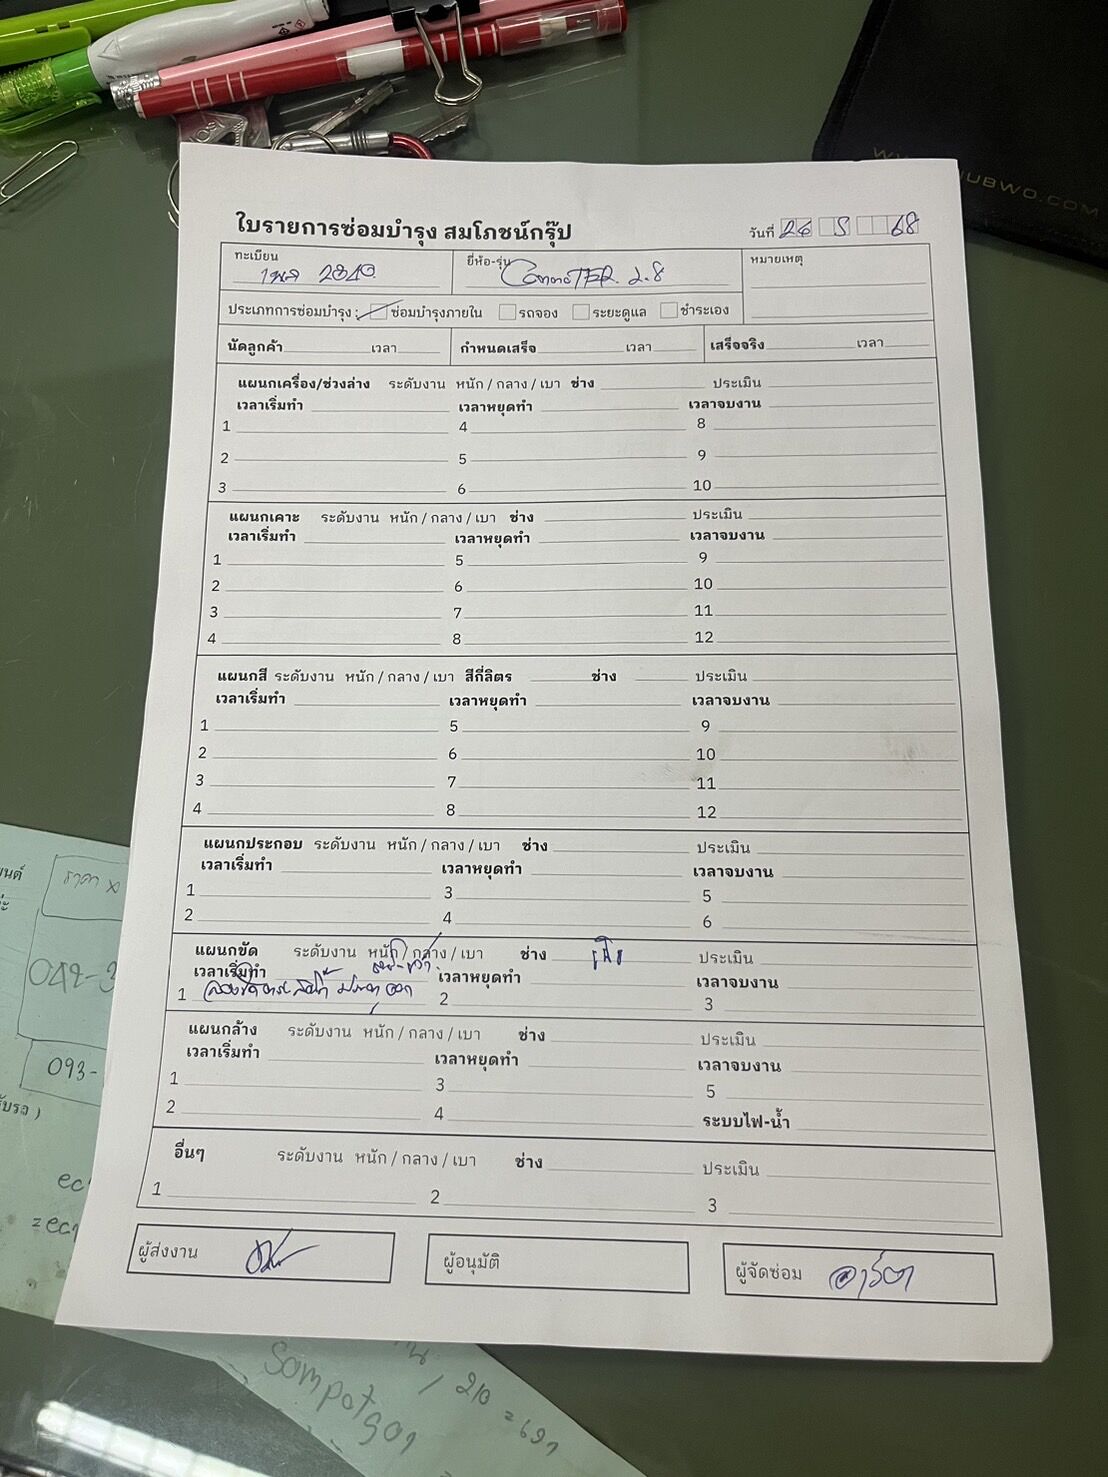 ใบรายการซ่อมบำรุง สมโภชน์กรุ๊ป
วันที่ 26 5 68
ทะเบียน 2840
ยี่ห้อ-รุ่น CommuTER 2.8
หมายเหตุ
ประเภทการซ่อมบำรุง : ซ่อมบำรุงภายใน รถจอง ระยะดูแล ชำระเอง
นัดลูกค้า เวลา กำหนดเสร็จ เวลา เสร็จจริง เวลา
แผนกเครื่อง/ช่วงล่าง ระดับงาน หนัก / กลาง / เบา ช่าง ประเมิน
เวลาเริ่มทำ เวลาหยุดทำ เวลาจบงาน
1 4 8
2 5 9
3 6 10
แผนกเคาะ ระดับงาน หนัก / กลาง / เบา ช่าง ประเมิน
เวลาเริ่มทำ เวลาหยุดทำ เวลาจบงาน
1 5 9
2 6 10
3 7 11
4 8 12
แผนกสี ระดับงาน หนัก / กลาง / เบา สีกี่ลิตร ช่าง ประเมิน
เวลาเริ่มทำ เวลาหยุดทำ เวลาจบงาน
1 5 9
2 6 10
3 7 11
4 8 12
แผนกประกอบ ระดับงาน หนัก / กลาง / เบา ช่าง ประเมิน
เวลาเริ่มทำ เวลาหยุดทำ เวลาจบงาน
1 3 5
2 4 6
แผนกขัด ระดับงาน หนัก / กลาง / เบา ช่าง ประเมิน
เวลาเริ่มทำ เวลาหยุดทำ เวลาจบงาน
1 2 3
แผนกล้าง ระดับงาน หนัก / กลาง / เบา ช่าง ประเมิน
เวลาเริ่มทำ เวลาหยุดทำ เวลาจบงาน
1 3 5
2 4 ระบบไฟ-น้ำ
อื่นๆ ระดับงาน หนัก / กลาง / เบา ช่าง ประเมิน
1 2 3
ผู้ส่งงาน
ผู้อนุมัติ
ผู้จัดซ่อม
093-